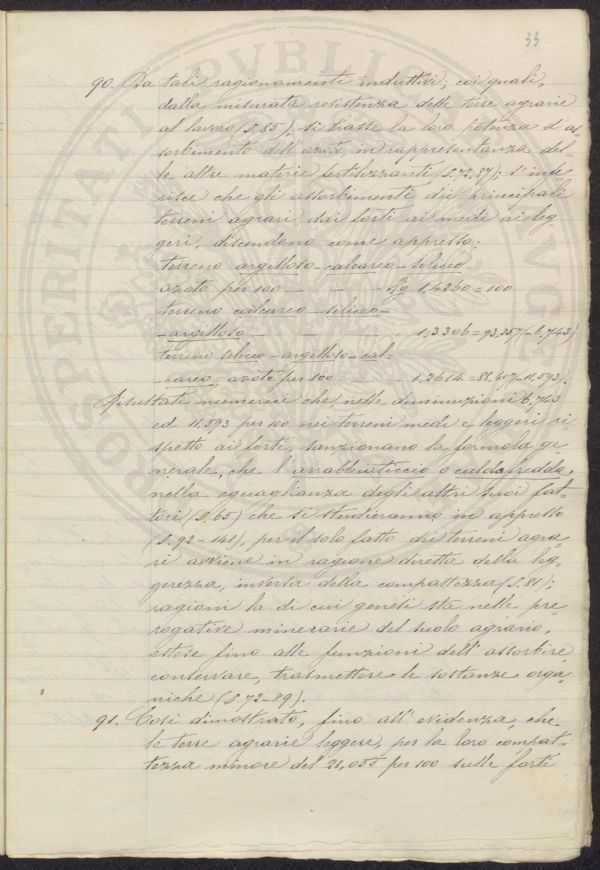 33
90. Da tali ragionamenti induttivi; coi quali,
dalla misurata resistenza delle terre agrarie
al lavoro (§.85), si trasse la loro potenza d'as-
sorbimento dell'azoto, in rappresentanza del-
le altre materie fertilizzanti (§.72-87); s'infe-
risce che gli assorbimenti dei principali
terreni agrari, dai forti ai medi ai leg-
geri, discendono come appresso:
terreno argilloso-calcareo-siliceo
azoto per 100 — — - Kg 1,4260 = 100
terreno calcareo-siliceo-
-argilloso - - - - 1,3306 = 93,257(-6,743)
terreno siliceo-argilloso-cal-
careo, azoto per 100 - - 1,2614 = 88,407(-11,593).
Risultati numerici che, nelle diminuzioni 6,743
ed 11.593 per 100 nei terreni medi e leggeri ri
spetto ai forti, sanzionano la formola ge-
nerale, che l'arrabbiaticcio o caldafredda,
nella eguaglianza degli altri suoi fat-
tori (§.65) che si studieranno in appresso
(§.92-141), per il solo fatto dei terreni agra-
ri avviene in ragione diretta della leg-
gerezza, inversa della compattezza (§.81);
ragioni la di cui genesi sta nelle pre-
rogative minerarie del suolo agrario,
estese fino alle funzioni dell'assorbire
conservare, trasmettere le sostanze orga-
niche (§.72-89).
91. Così dimostrato, fino all'evidenza, che
le terre agrarie leggere, per la loro compat-
tezza minore del 21,055 per 100 sulle forti
PROSPERITATI PVBLICAE AVGENDAE